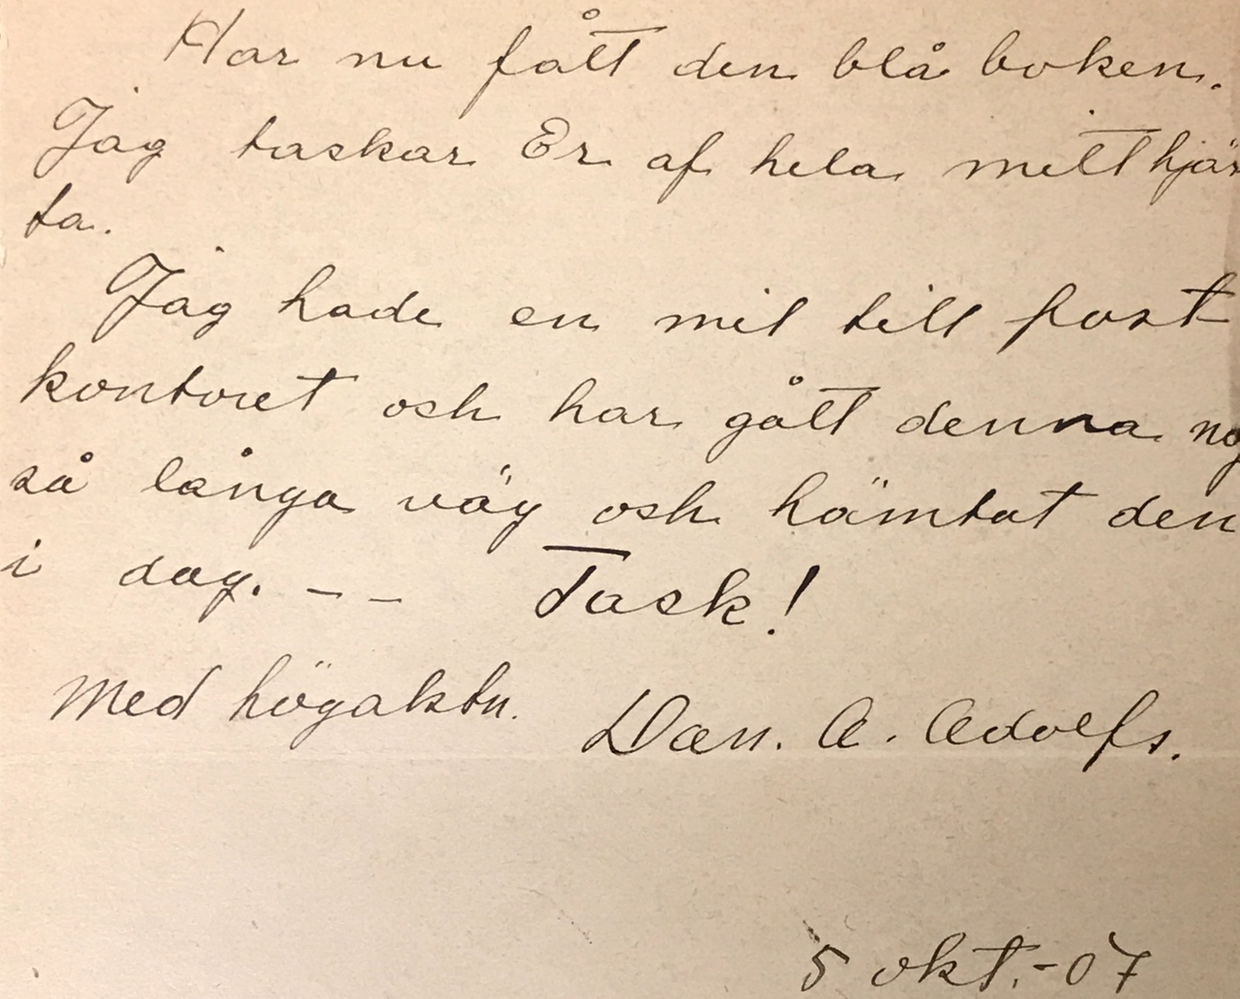 Har nu fått den blå boken.
Jag taskar Er af hela mitt hjär
ta.
Jag hade en mil till post
kontoret osh har gått denna no
så långa väg osh hämtat den
i dag. – – Task!
Med högaktn.
Dan. A. Adolfs.
5 okt.-07